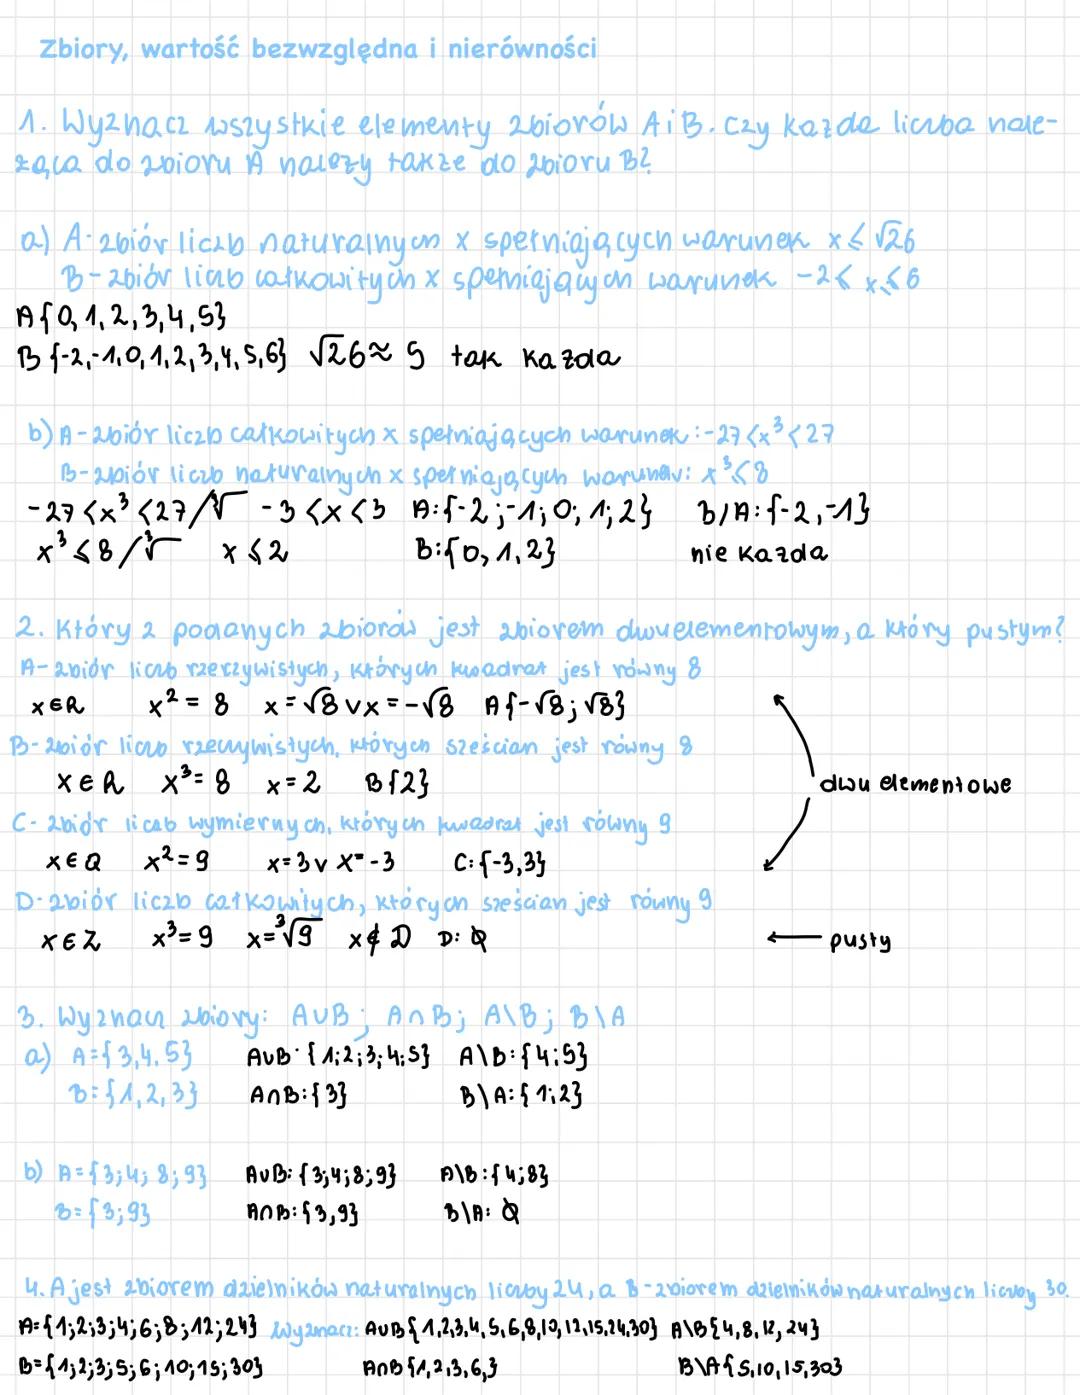 Zbiory, wartość bezwzględna i nierówności
1. Wyznacz wszystkie elementy zbiorów A i B. Czy każda liczba nale-
żąca do zbioru A należy także do zbioru B?
a) A-zbiór liczb naturalnych x spełniających warunek x ≤ √26
B-zbiór liczb całkowitych x spełniających warunek -2 ≤ x ≤ 6
A{0,1,2,3,4,5}
B{-2,-1,0,1,2,3,4,5,6} √26≈5 tak każda
b) A-zbiór liczb całkowitych x spełniających warunek:-27<x³<27
B-zbiór liczb naturalnych x spełniających warunek: x³≤8
-27<x³<27/∛ -3<x<3 A:{-2;-1;0;1;2} B/A:{-2,-1}
x³≤8/∛ x≤2 B:{0,1,2} nie każda
2. Który z podanych zbiorów jest zbiorem dwuelementowym, a który pustym?
A-zbiór liczb rzeczywistych, których kwadrat jest równy 8
x∈R x²=8 x=√8 ∨ x=-√8 A{-√8;√8}
B-zbiór liczb rzeczywistych, których sześcian jest równy 8
x∈R x³=8 x=2 B{2}
dwu elementowe
C-zbiór liczb wymiernych, których kwadrat jest równy 9
x∈Q x²=9 x=3 ∨ x=-3 C:{-3,3}
D-zbiór liczb całkowitych, których sześcian jest równy 9
x∈Z x³=9 x=∛9 x∉D D:∅ ← pusty
3. Wyznacz zbiory: A∪B; A∩B; A\B; B\A
a) A={3,4,5} A∪B:{1;2;3;4;5} A\B:{4;5}
B={1,2,3} A∩B:{3} B\A:{1;2}
b) A={3;4;8;9} A∪B:{3;4;8;9} A\B:{4;8}
B={3;9} A∩B:{3,9} B\A:∅
4. A jest zbiorem dzielników naturalnych liczby 24, a B-zbiorem dzielników naturalnych liczby 30.
A={1;2;3;4;6;8;12;24} Wyznacz: A∪B{1,2,3,4,5,6,8,10,12,15,24,30} A\B{4,8,12,24}
B={1;2;3;5;6;10;15;30} A∩B{1,2,3,6,} B\A{5,10,15,30}